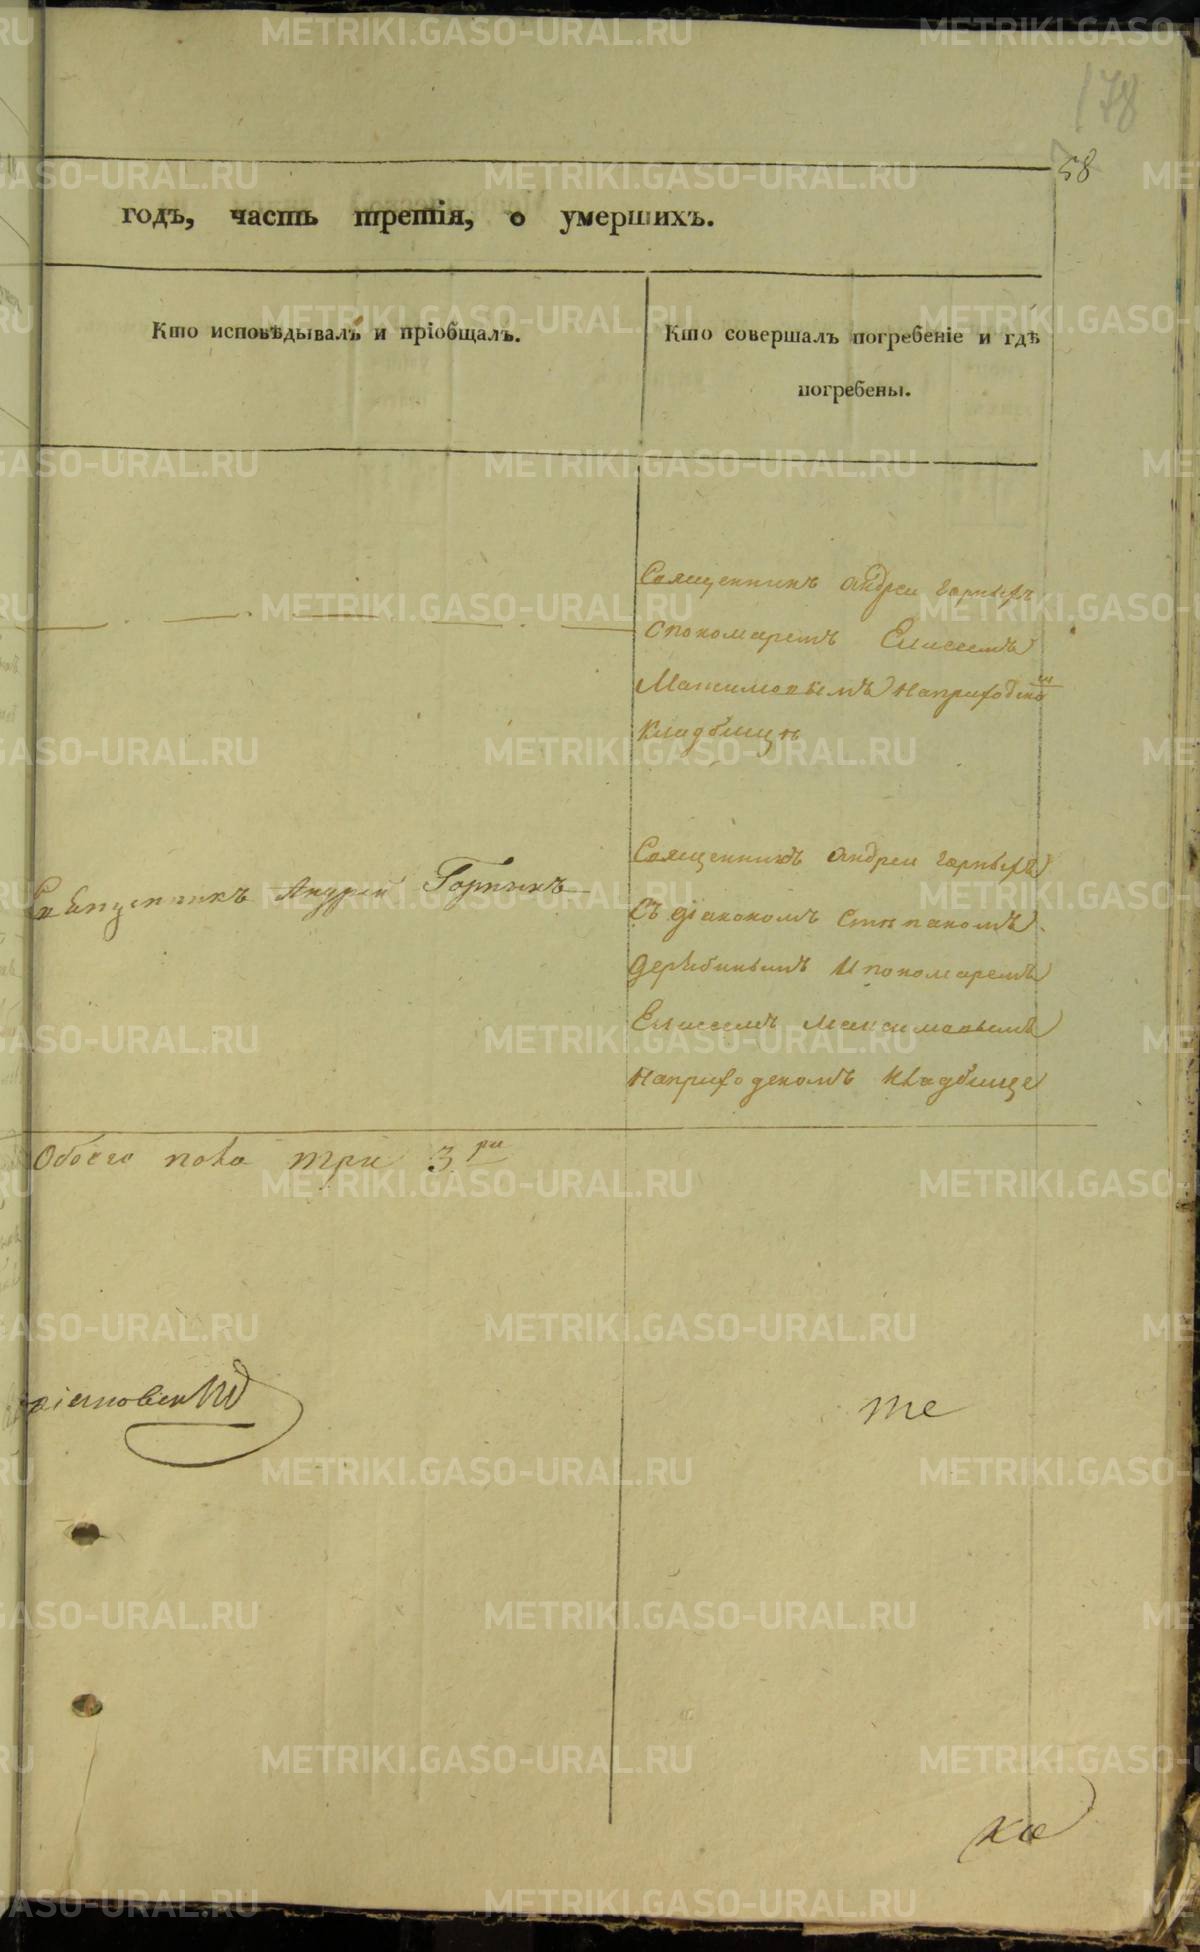 178
58
годъ, часть третія, о умершихъ.
Кто исповѣдывалъ и пріобщалъ.
Кто совершалъ погребеніе и гдѣ
погребены.
Священникъ Андреи Горныхъ
спономаремъ Елисеемъ
Максимовымъ Наприходско
м
кладбищѣ
Священникъ Андрей Горныхъ
Священникъ Андреи Горныхъ
Съ діакономъ Стѣпаномъ
Дерябинымъ и пономаремъ
Елисеемъ Максимовымъ
Наприходскомъ кладбище
Обоего пола три 3 ри
те
ка
METRIKI.GASO-URAL.RU